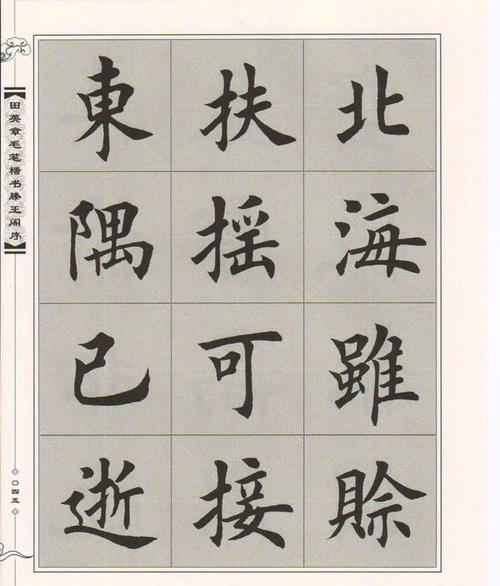 北海雖賒
扶摇可接
東隅已逝
【田英章毛笔楷书滕王阁序】
〇四五